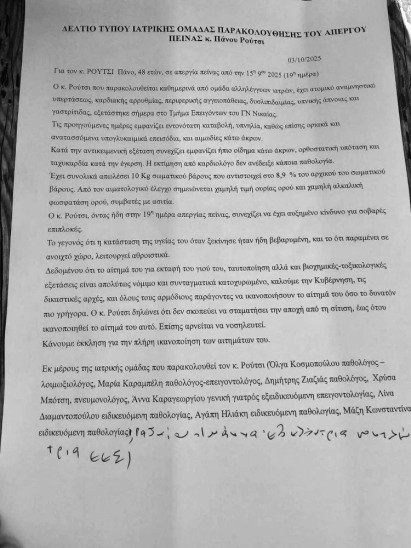 ΔΕΛΤΙΟ ΤΥΠΟΥ ΙΑΤΡΙΚΗΣ ΟΜΑΔΑΣ ΠΑΡΑΚΟΛΟΥΘΗΣΗΣ ΤΟΥ ΑΠΕΡΓΟΥ
ΠΕΙΝΑΣ κ. Πάνου Ρούτσι
03/10/2025
Για τον κ. ΡΟΥΤΣΙ Πάνο, 48 ετών, σε απεργία πείνας από την 15η 9ου 2025 (19η ημέρα)
Ο κ. Ρούτσι που παρακολουθείται καθημερινά από ομάδα αλληλέγγυων ιατρών, έχει ατομικό αναμνηστικό
υπερτάσεως, καρδιακής αρρυθμίας, περιφερικής αγγειοπάθειας, δυσλιπιδαιμίας, υπνικής άπνοιας και
γαστρίτιδας, εξετάστηκε σήμερα στο Τμήμα Επειγόντων του ΓΝ Νίκαιας.
Τις προηγούμενες ημέρες εμφανίζει εντονότατη καταβολή, υπνηλία, καθώς επίσης αραιά και
αναπασσόμενα υπογλυκαιμικά επεισόδια, και αιμωδίες κάτω άκρων.
Κατά την αντικειμενική εξέταση συνεχίζει εμφανίζει ήπιο οίδημα κάτω άκρων, ορθοστατική υπόταση και
ταχυκαρδία κατά την έγερση. Η εκτίμηση από καρδιολόγο δεν ανέδειξε κάποια παθολογία.
Έχει συνολικά απωλέσει 10 Kg σωματικού βάρους που αντιστοιχεί στο 8,9 % του αρχικού του σωματικού
βάρους. Από τον αιματολογικό έλεγχο σημειώνεται χαμηλή τιμή ουρίας ορού και χαμηλή αλκαλική
φωσφατάση ορού, συμβατές με ασιτία.
Ο κ. Ρούτσι, όντας ήδη στην 19η ημέρα απεργίας πείνας, συνεχίζει να έχει αυξημένο κίνδυνο για σοβαρές
επιπλοκές.
Το γεγονός ότι η κατάσταση της υγείας του όταν ξεκίνησε ήταν ήδη βεβαρημένη, και το ότι παραμένει σε
ανοιχτό χώρο, λειτουργεί αθροιστικά.
Δεδομένου ότι το αίτημά του για εκταφή του γιού του, ταυτοποίηση αλλά και βιοχημικές-τοξικολογικές
εξετάσεις είναι απολύτως νόμιμο και συνταγματικά κατοχυρωμένο, καλούμε την Κυβέρνηση, τις
δικαστικές αρχές, και όλους τους αρμόδιους παράγοντες να ικανοποιήσουν το αίτημά του όσο το δυνατόν
πιο γρήγορα. Ο κ. Ρούτσι δηλώνει ότι δεν σκοπεύει να σταματήσει την αποχή από τη σίτιση, έως ότου
ικανοποιηθεί το αίτημά του αυτό. Επίσης αρνείται να νοσηλευτεί.
Κάνουμε έκκληση για την πλήρη ικανοποίηση των αιτημάτων του.
Εκ μέρους της ιατρικής ομάδας που παρακολουθεί τον κ. Ρούτσι (Όλγα Κοσμοπούλου παθολόγος –
λοιμωξιολόγος, Μαρία Καραμπέλη παθολόγος-επειγοντολόγος, Δημήτρης Ζιαζιάς παθολόγος, Χρύσα
Μπότση, πνευμονολόγος, Άννα Καραγεωργίου γενική γιατρός εξειδικευόμενη επειγοντολογίας, Λίνα
Διαμαντοπούλου ειδικευόμενη παθολογίας, Αγάπη Ηλιάκη ειδικευόμενη παθολογίας, Μάζη Κωνσταντίνα
ειδικευόμενη παθολογίας